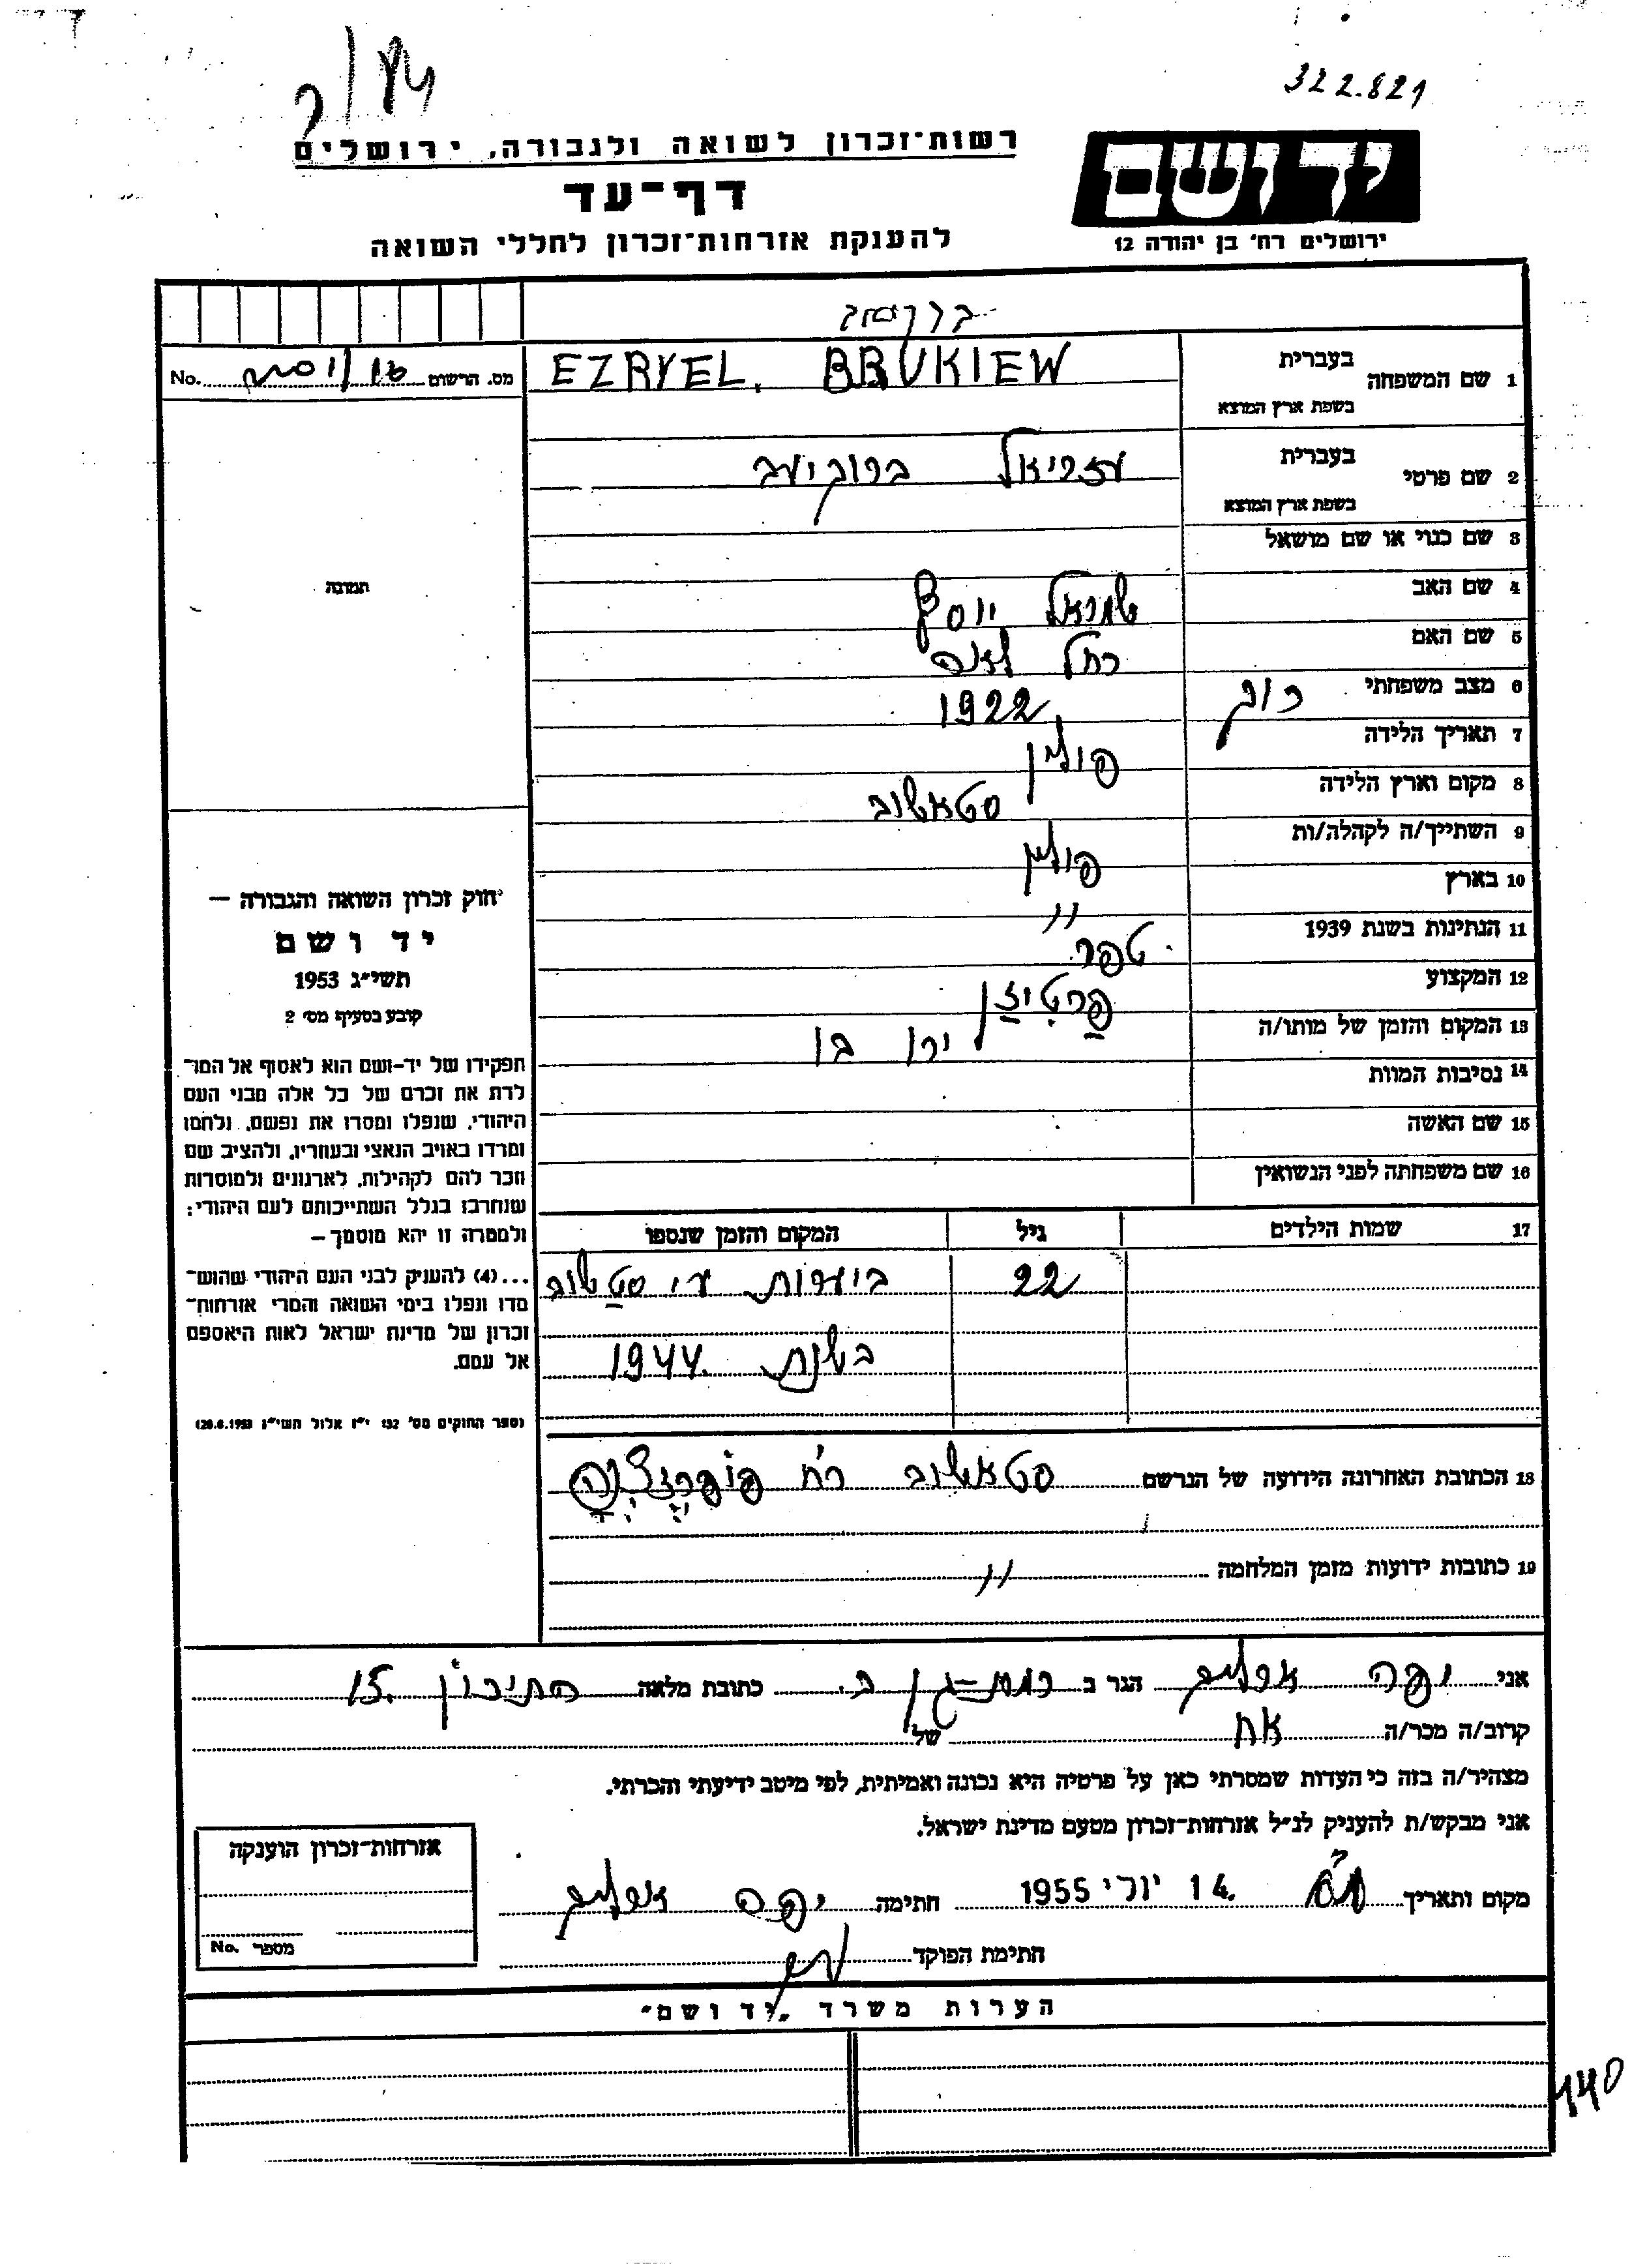 322.821
רשות־זכרון לשואה ולגבורה, ירושלים
יד ושם
דף-עד
ירושלים רח' בן יהודה 12
להענקת אזרחות־זכרון לחללי השואה
1 שם המשפחה בעברית
בשפת ארץ המוצא
EZRYEL. BRUKIEW
מס. הרשום No.
2 שם פרטי בעברית
בשפת ארץ המוצא
עזריאל ברוקיעב
3 שם כנוי או שם מושאל
4 שם האב שמואל יוסף
תמונה
5 שם האם רחל לאה
6 מצב משפחתי רוק
7 תאריך הלידה 1922
8 מקום וארץ הלידה פולין
9 השתייך/ה לקהלה/ות סטאשוב
10 בארץ פולין
11 הנתינות בשנת 1939 "
12 המקצוע ספר
13 המקום והזמן של מותו/ה פרטיזן
14 נסיבות המוות
15 שם האשה
16 שם משפחתה לפני הנשואין
17 שמות הילדים גיל המקום והזמן שנספו
22 ביערות ע"י סטשוב
בשנת 1944
חוק זכרון השואה והגבורה —
יד ושם
תשי״ג 1953
קובע בסעיף מס׳ 2
תפקידו של יד-ושם הוא לאסוף אל המו־
לדת את זכרם של כל אלה מבני העם
היהודי, שנפלו ומסרו את נפשם, ולחמו
ומרדו באויב הנאצי ובעוזריו, ולהציב שם
וזכר להם לקהילות, לארגונים ולמוסדות
שנחרבו בגלל השתייכותם לעם היהודי;
ולמטרה זו יהא מוסמך—
...(4) להעניק לבני העם היהודי שהוש־
מדו ונפלו בימי השואה והמרי אזרחות־
זכרון של מדינת ישראל לאות היאספם
אל עמם.
(ספר החוקים מס׳ 132 י״ז אלול תשי״ג 28.8.1953)
18 הכתובת האחרונה הידועה של הנרשם סטאשוב רח'
19 כתובות ידועות מזמן המלחמה "
אני יפה הגר ב רמת-גן ב. כתובת מלאה התיכון 15
קרוב/ה מכר/ה אח של
מצהיר/ה בזה כי העדות שמסרתי כאן על פרטיה היא נכונה ואמיתית, לפי מיטב ידיעתי והכרתי.
אני מבקש/ת להעניק לנ״ל אזרחות-זכרון מטעם מדינת ישראל.
מקום ותאריך 14. יוני 1955 חתימה יפה
חתימת הפוקד
אזרחות-זכרון הוענקה
מספר No.
הערות משרד „יד ושם״
440